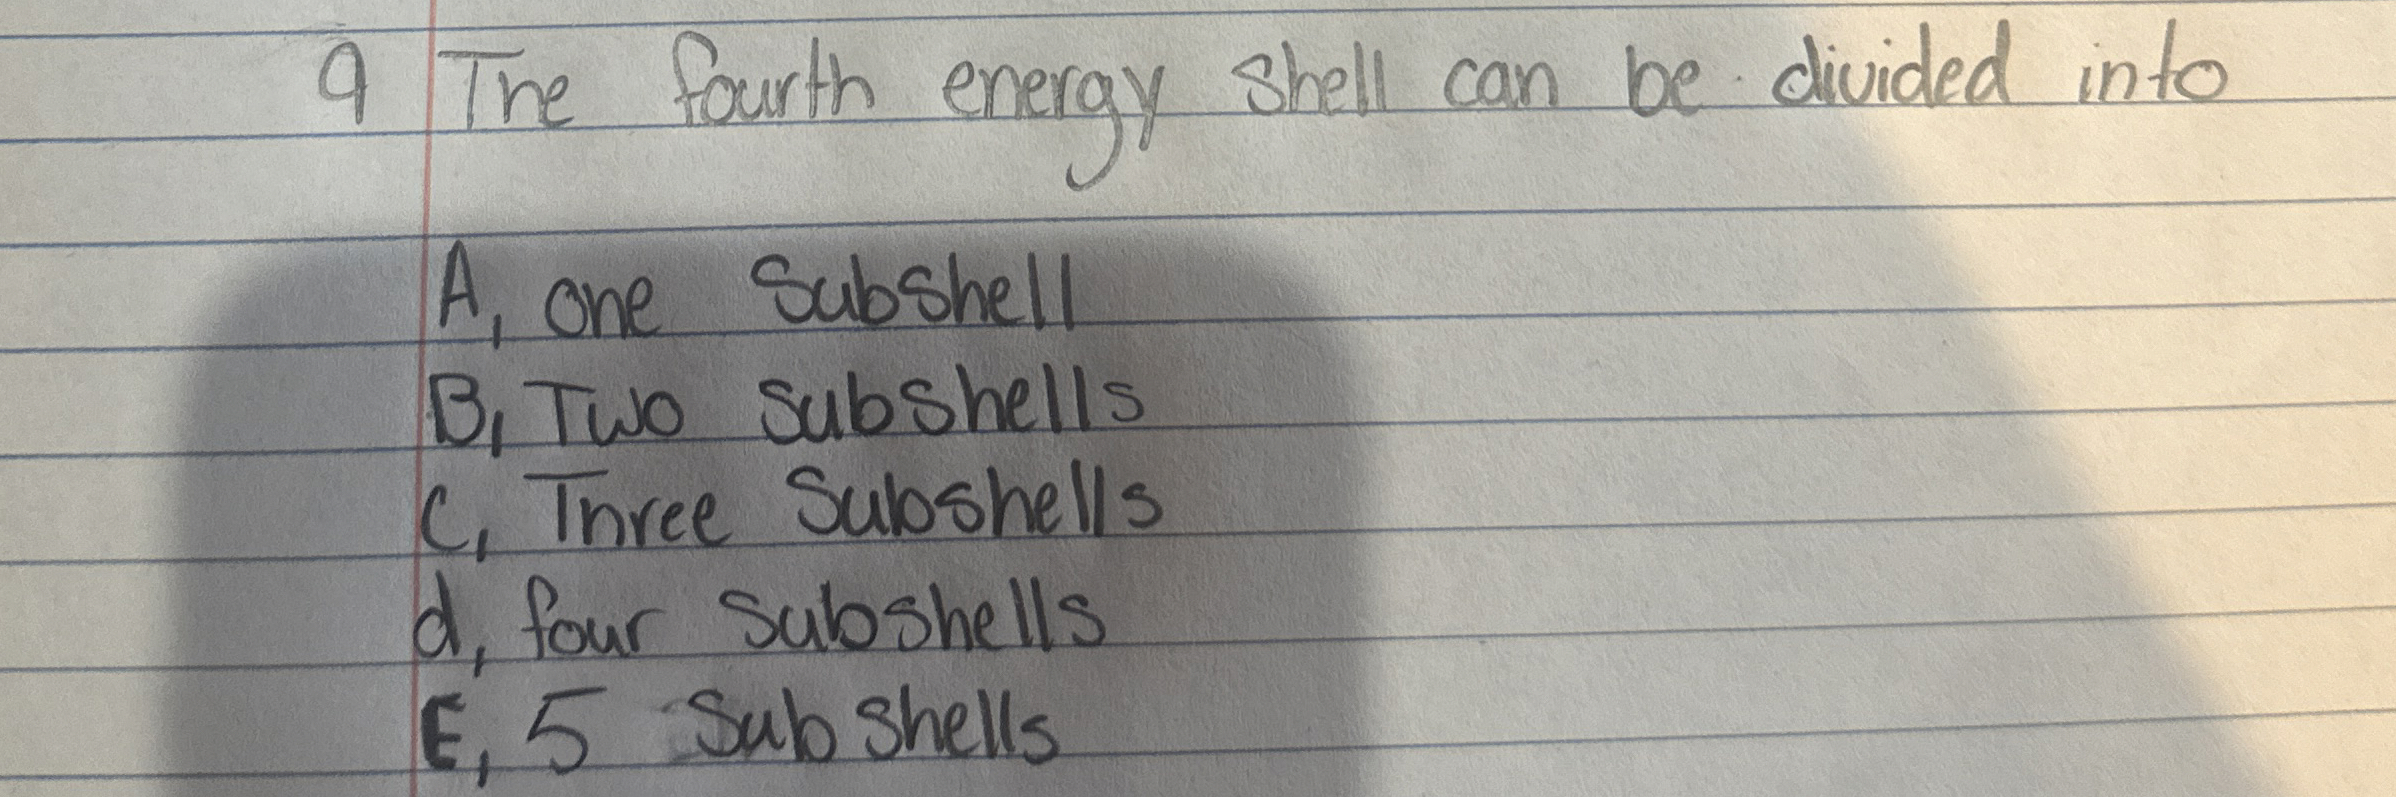 9 The fourth energy shell can be divided into
A, one Subshell
B, Two subshells
C, Three Subshells
d, four subshells
E, 5 Subshells